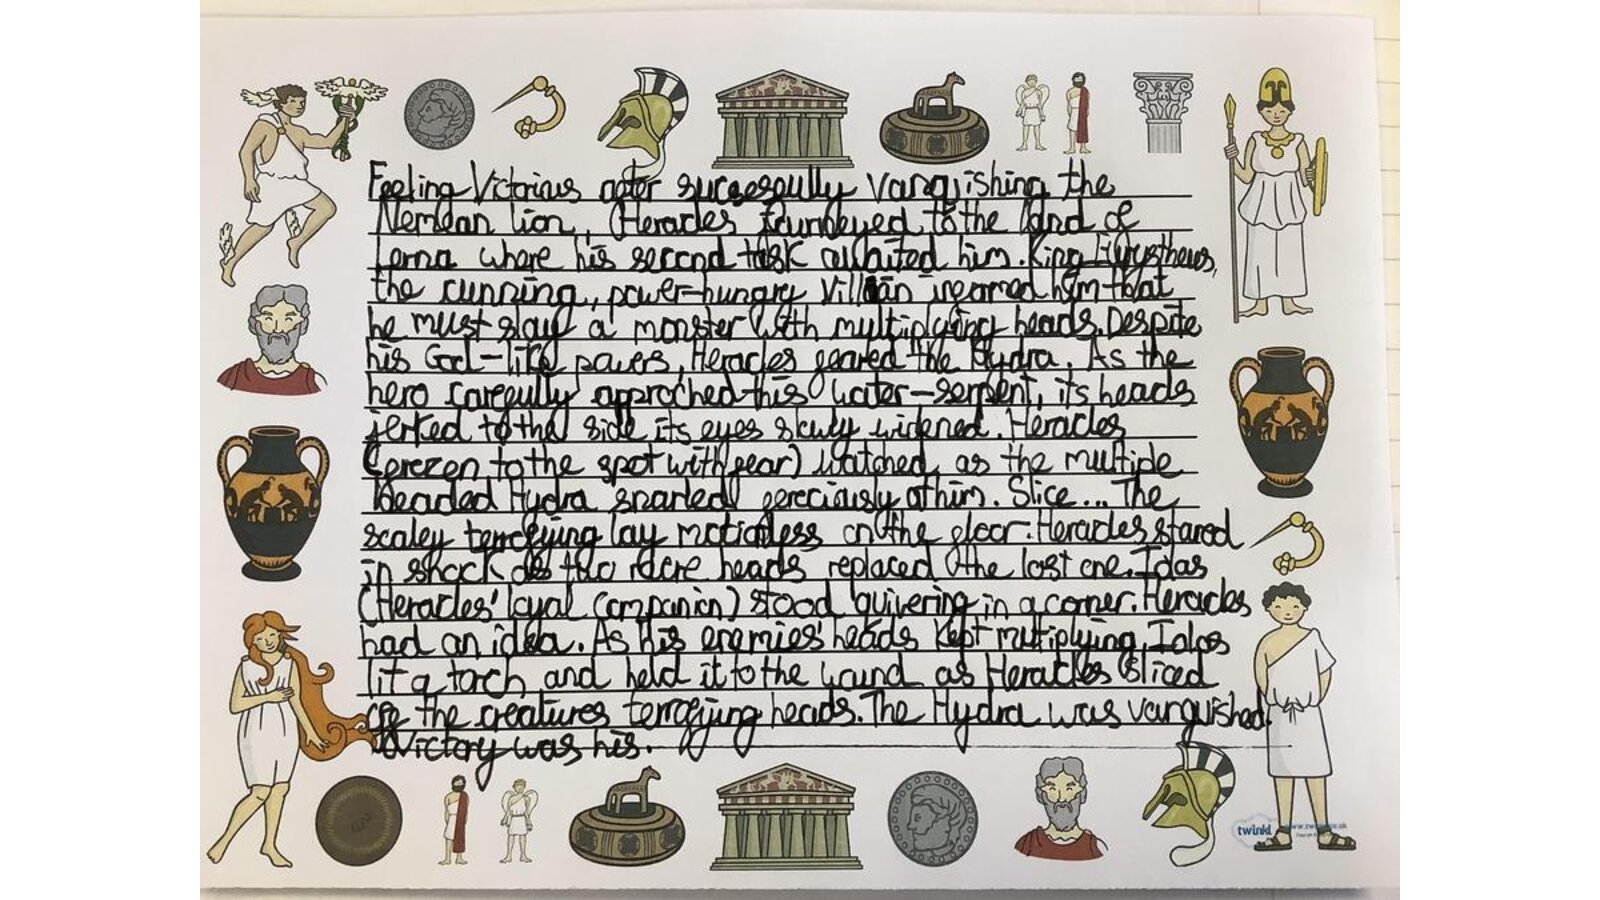 Feeling Victorious after successfully vanquishing the
Nemean lion, Heracles journeyed to the land of
Lerna where his second task awaited him. King Eurystheus,
the cunning, power-hungry villian informed him that
he must slay a monster with multiplying heads. Despite
his God-like powers, Heracles feared the Hydra. As the
hero carefully approched this water-serpent, its heads
jerked to the side its eyes slowly widened. Heracles
(frozen to the spot with fear) watched as the multiple
headed Hydra snarled ferociously at him. Slice... The
scaley terrefying lay motionless on the floor. Heracles stared
in shock as two more heads replaced the last one. Iolas
(Heracles' loyal companion) stood quivering in a corner. Heracles
had an idea. As his enemies' heads kept multiplying, Iolas
lit a torch and held it to the wound as Heracles sliced
off the creatures terrefying heads. The Hydra was vanquished.
Victory was his.
twinkl